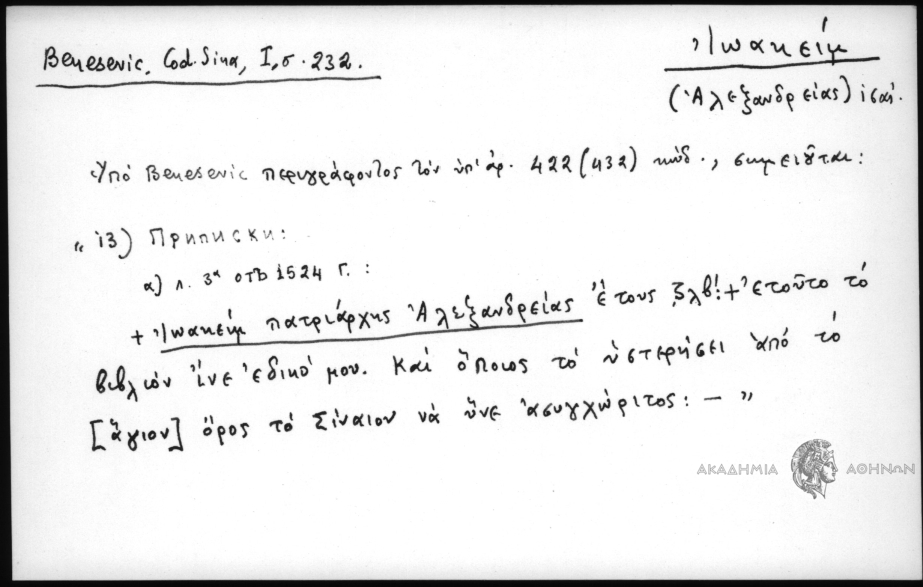 Benesevic, Cod. Sina, I, σ. 232.
Ἰωακείμ
(Ἀλεξανδρείας)
Ὑπό Benesevic περιγράφοντος τόν ὑπ' ἀρ. 422 (432) κώδ., σημειοῦται:
" 13) Приписки:
α) л. 3α отъ 1524 г.:
+ Ἰωακείμ πατριάρχης Ἀλεξανδρείας Ἔτους ζλβ! + ἐτοῦτο τό
βιβλιόν ἵνε ἐδικό μου. Καί ὅποιος τό ὑστερήσει ἀπό τό
[ἅγιον] ὄρος τό Σίναιον νά ὕνε ἀσυγχώριτος: — "
ΑΚΑΔΗΜΙΑ ΑΘΗΝΩΝ